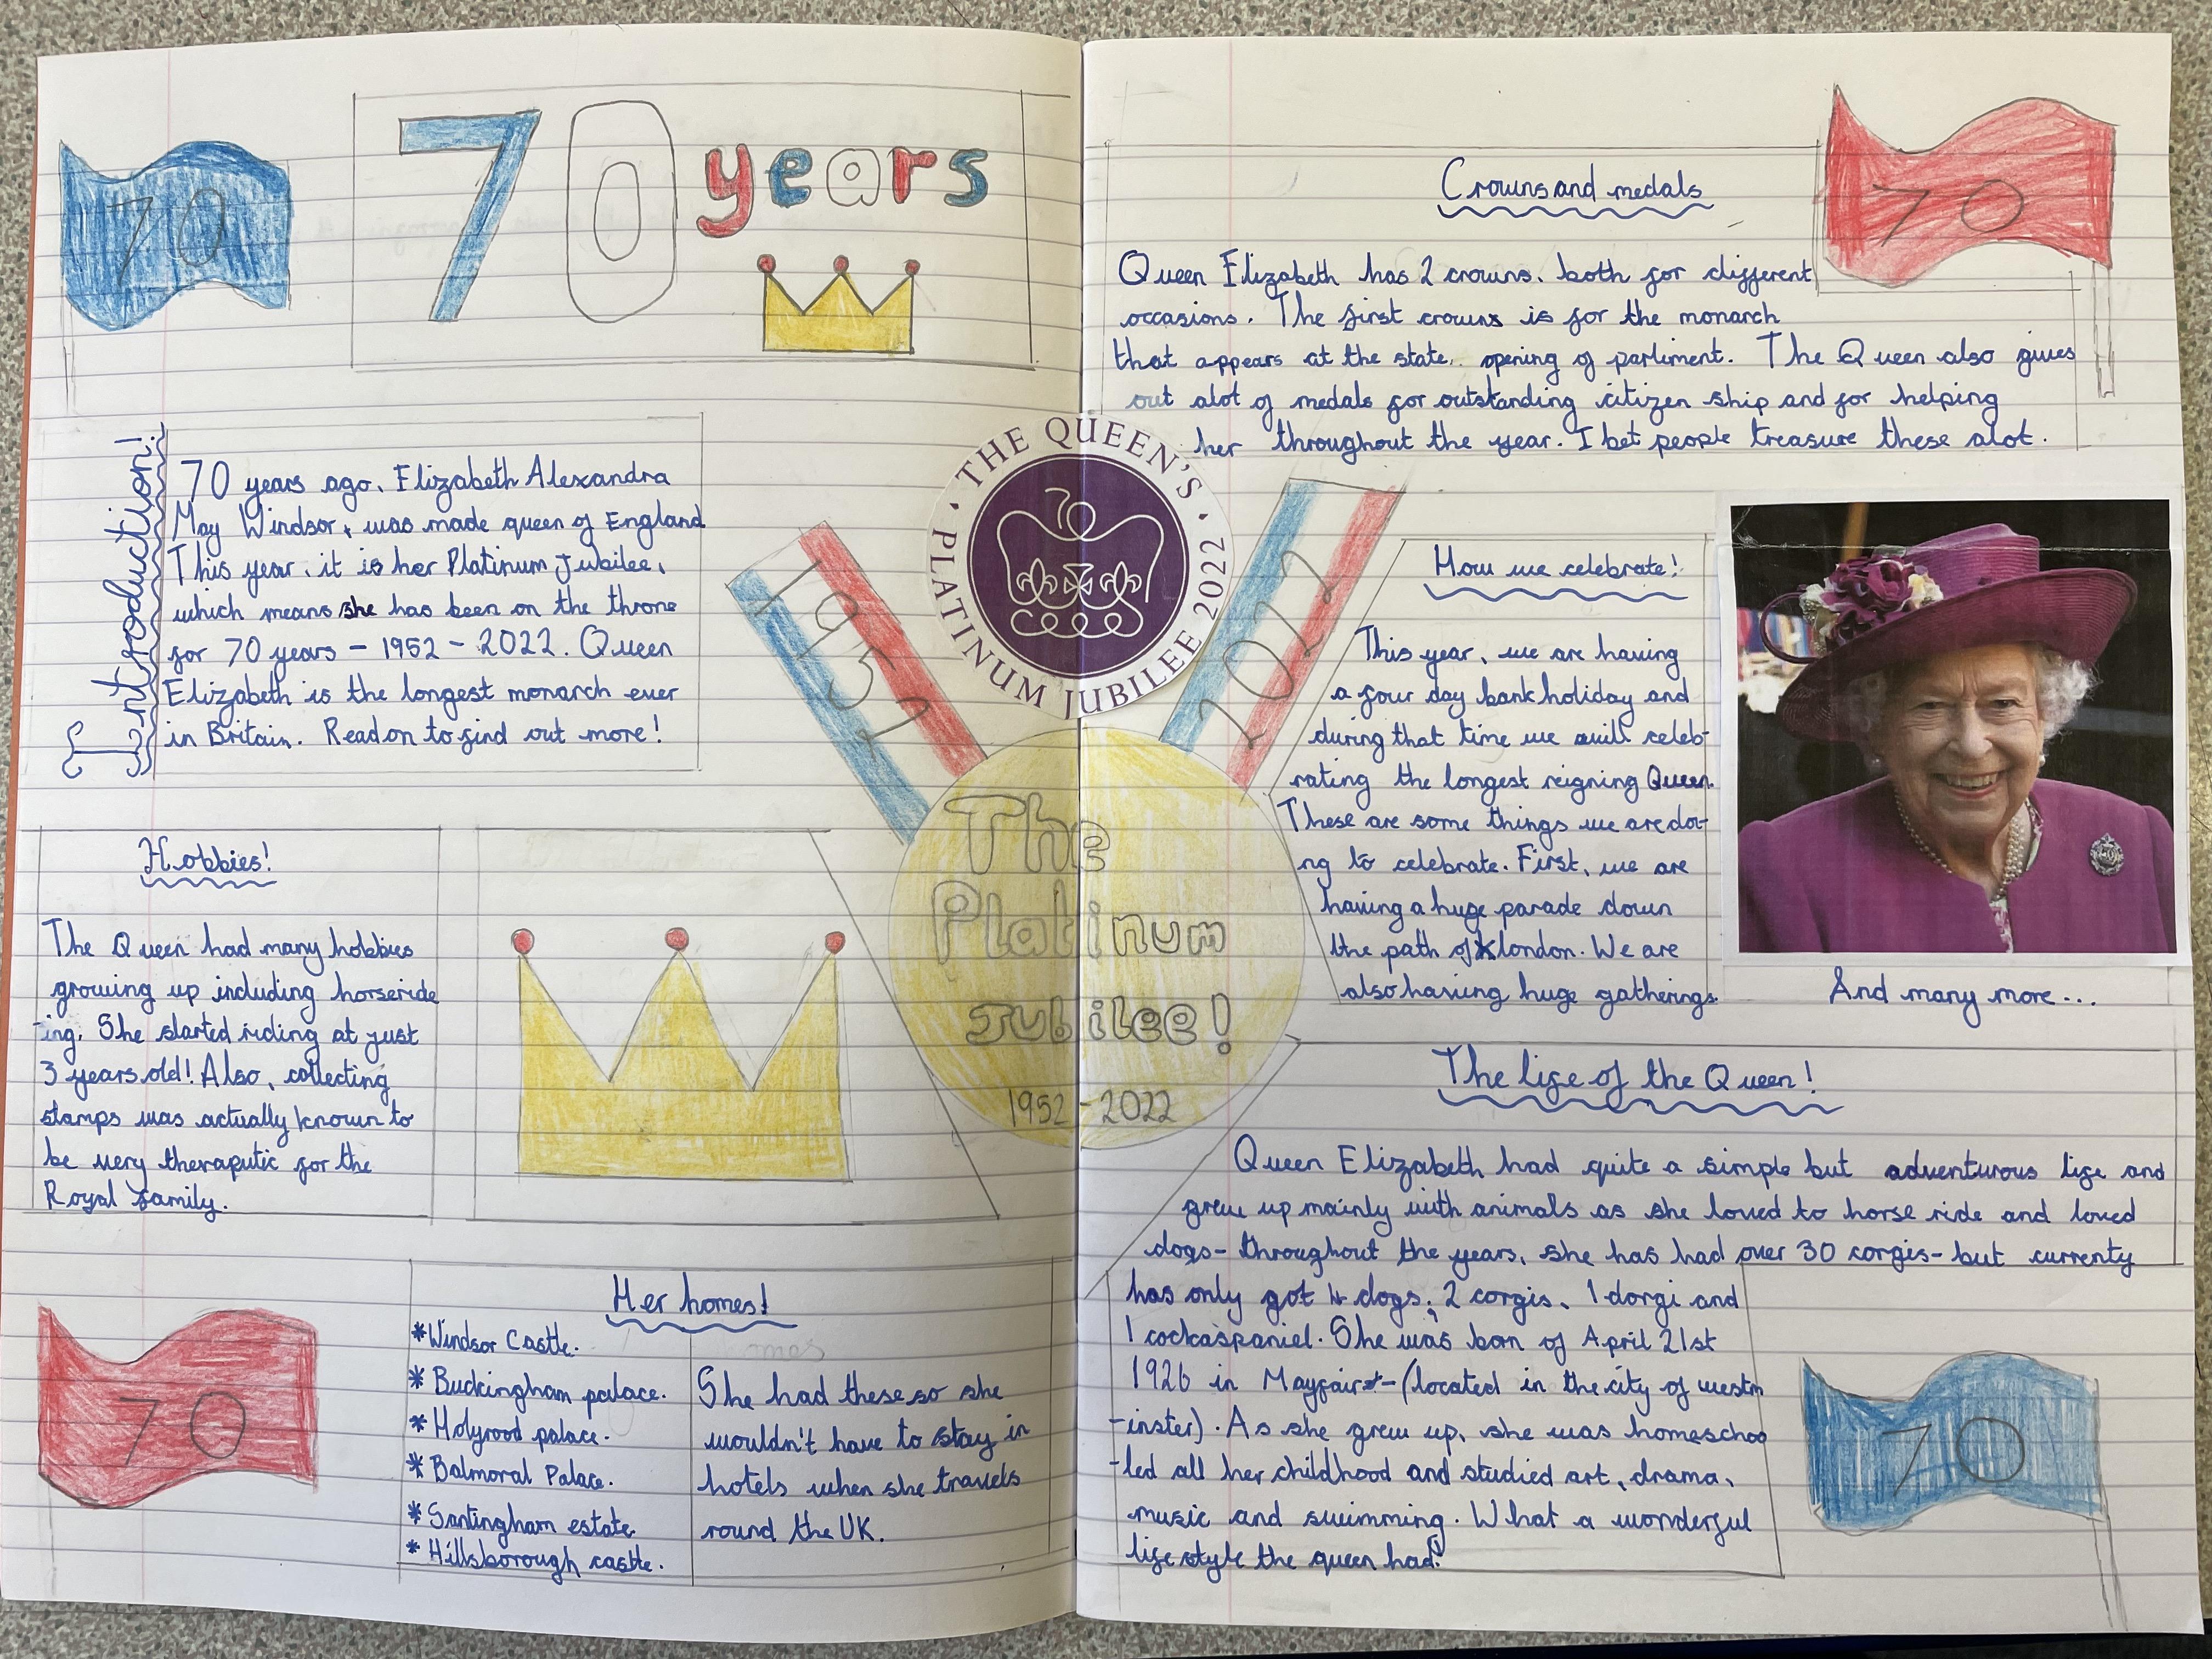 70
70 years
Introduction!
70 years ago, Elizabeth Alexandra
May Windsor, was made queen of England
This year, it is her Platinum Jubilee,
which means she has been on the throne
for 70 years - 1952 - 2022. Queen
Elizabeth is the longest monarch ever
in Britain. Read on to find out more!
Hobbies!
The Queen had many hobbies
growing up including horseride
-ing. She started riding at just
3 years old! Also, collecting
stamps was actually known to
be very theraputic for the
Royal family.
70
Her homes!
*Windsor Castle.
* Buckingham palace.
* Holyrood palace.
* Balmoral Palace.
* Santingham estate
* Hillsborough castle.
She had these so she
wouldn't have to stay in
hotels when she travels
round the UK.
1952
2022
THE QUEEN'S
PLATINUM JUBILEE 2022
70
The
Platinum
Jubilee!
1952-2022
Crowns and medals
70
Queen Elizabeth has 2 crowns, both for different
occasions. The first crowns is for the monarch
that appears at the state, opening of parliment. The Queen also gives
out alot of medals for outstanding citizen ship and for helping
her throughout the year. I bet people treasure these alot.
How we celebrate!
This year, we are having
a four day bank holiday and
during that time we will celeb-
rating the longest reigning Queen.
These are some things we are doi-
ng to celebrate. First, we are
having a huge parade down
the path of london. We are
also having huge gatherings.
And many more...
The life of the Queen!
Queen Elizabeth had quite a simple but adventurous life and
grew up mainly with animals as she loved to horse ride and loved
dogs- throughout the years, she has had over 30 corgis- but currenty
has only got 4 dogs; 2 corgis, 1 dorgi and
1 cockaspaniel. She was born of April 21st
1926 in Mayfair - (located in the city of westm
-inster). As she grew up, she was homeschoo
-led all her childhood and studied art, drama,
music and swimming. What a wonderful
life style the queen had!
70